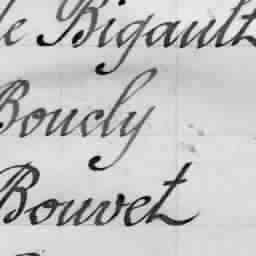 de Bigault
Boucly
Bouvet